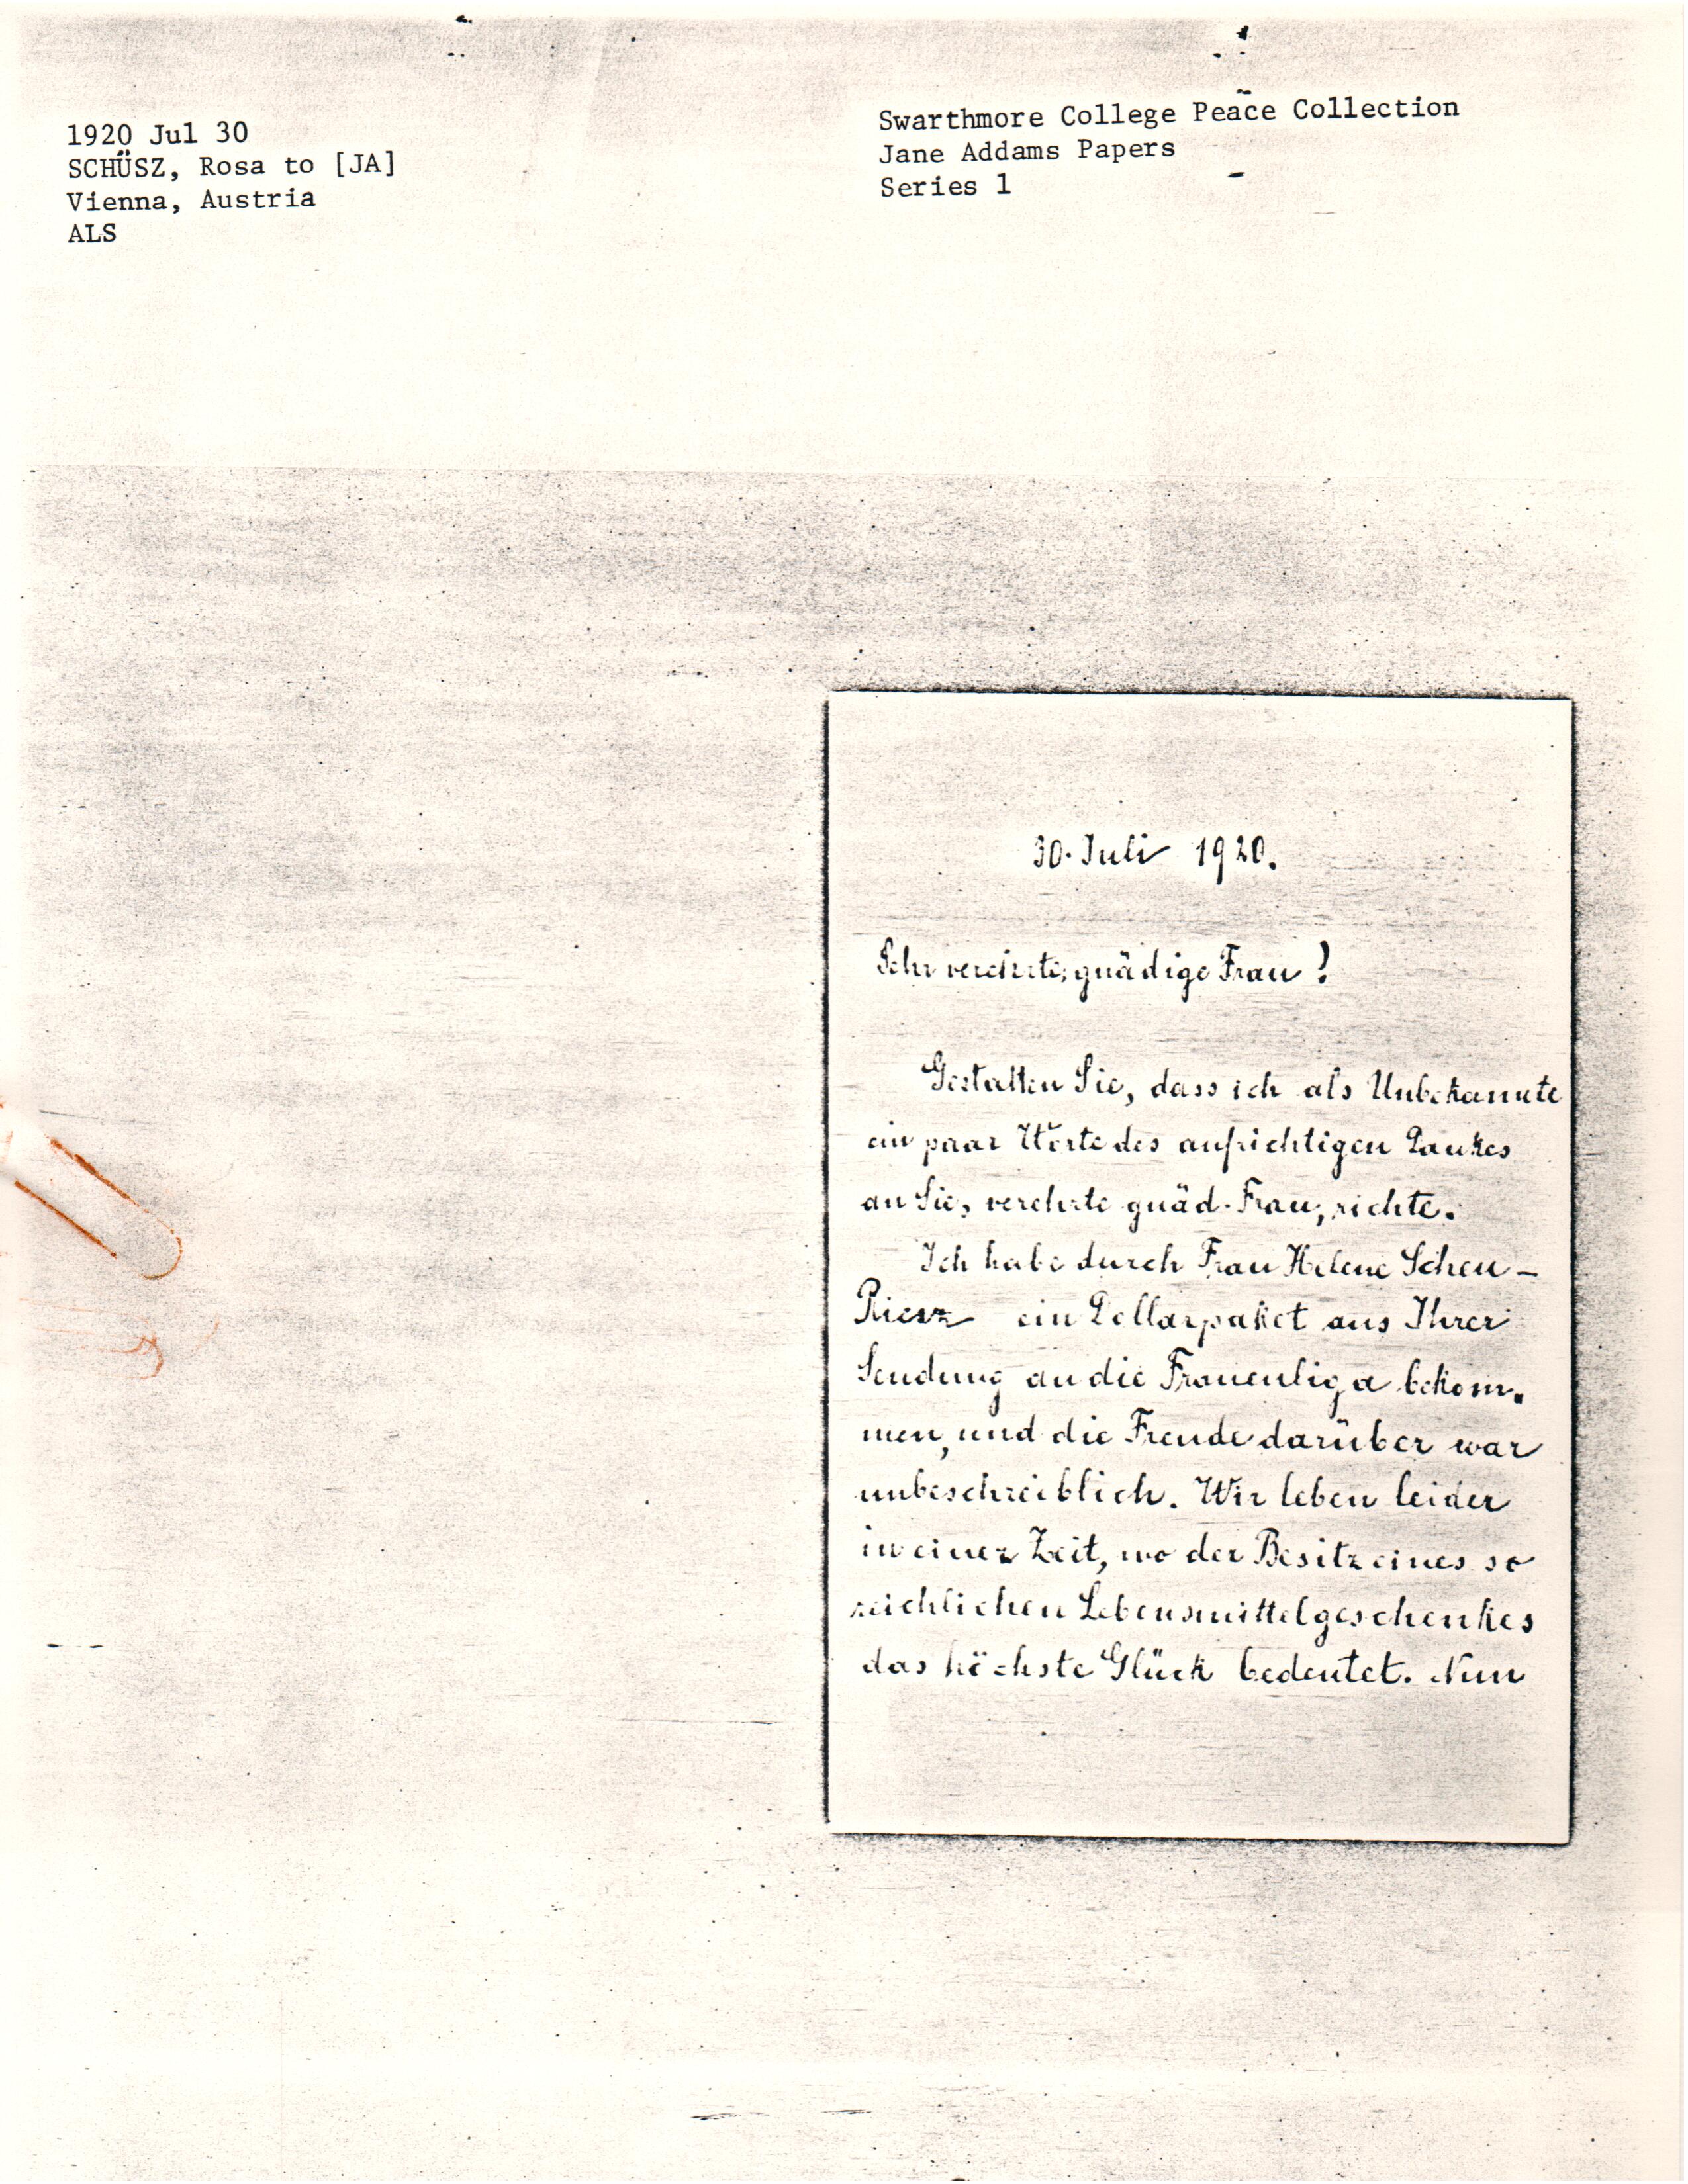 1920 Jul 30
SCHÜSZ, Rosa to [JA]
Vienna, Austria
ALS
Swarthmore College Peace Collection
Jane Addams Papers
Series 1
30. Juli 1920.
Sehr verehrte, gnädige Frau!
Gestatten Sie, dass ich als Unbekannte
ein paar Worte des aufrichtigen Dankes
an Sie, verehrte gnäd. Frau, richte.
Ich habe durch Frau Helene Scheu-
Riesz ein Dollarpaket aus Ihrer
Sendung an die Frauenliga bekom-
men, und die Freude darüber war
unbeschreiblich. Wir leben leider
in einer Zeit, wo der Besitz eines so
reichlichen Lebensmittelgeschenkes
das höchste Glück bedeutet. Nun